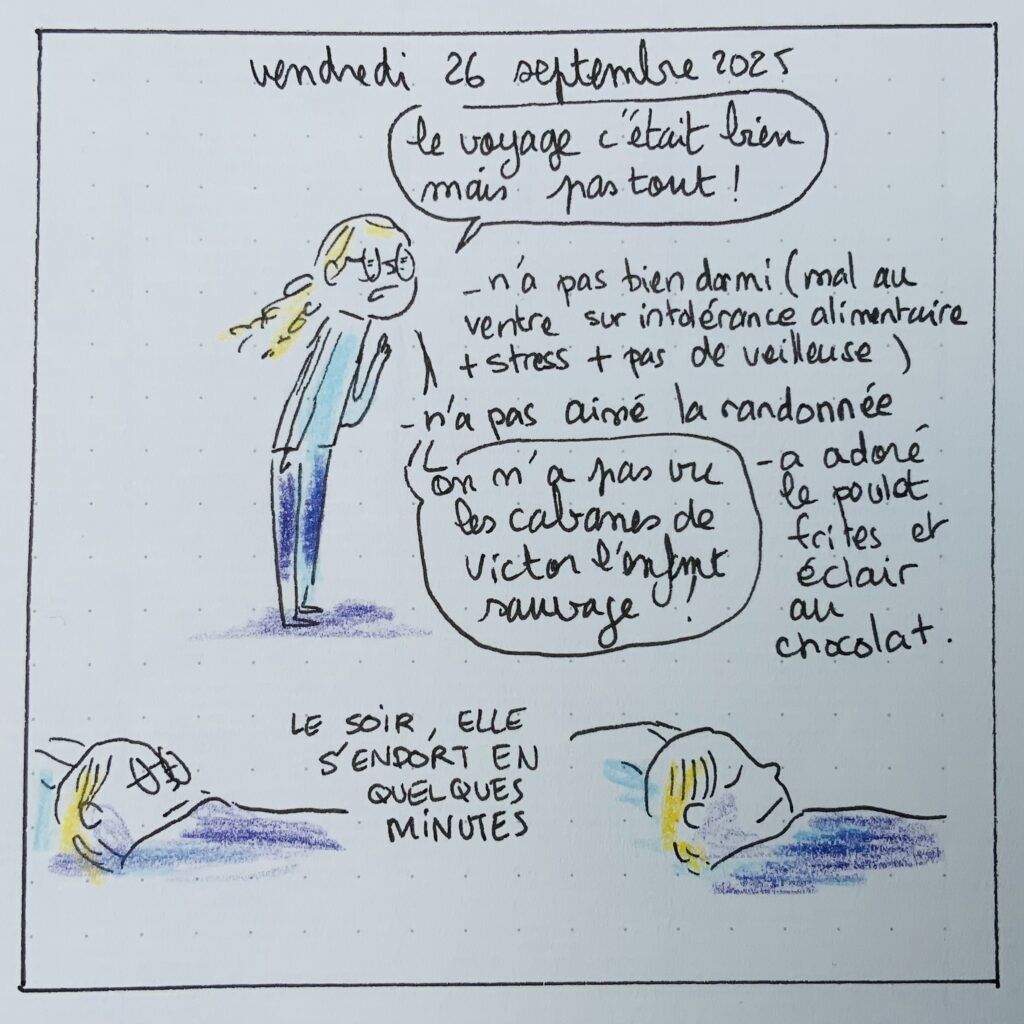 vendredi 26 septembre 2025
le voyage c'était bien
mais pas tout !
- n'a pas bien dormi (mal au
ventre sur intolérance alimentaire
+ stress + pas de veilleuse)
- n'a pas aimé la randonnée
on n'a pas vu
les cabanes de
victor l'enfant
sauvage !
- a adoré
le poulet
frites et
éclair
au
chocolat.
LE SOIR, ELLE
S'ENDORT EN
QUELQUES
MINUTES